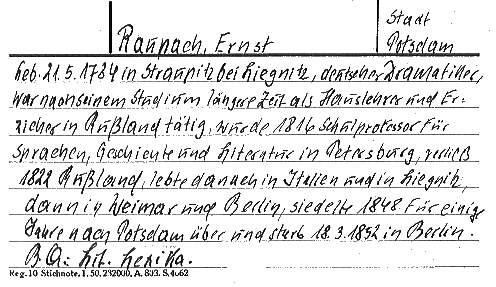 Stadt
Raupach, Ernst Potsdam
Geb. 21.5.1784 in Straupitz bei Liegnitz, deutscher Dramatiker,
war nach seinem Studium längere Zeit als Hauslehrer und Er-
zieher in Rußland tätig, wurde 1816 Schulprofessor für
Sprachen, Geschichte und Literatur in Petersburg, verließ
1822 Rußland, lebte danach in Italien und in Liegnitz,
dann in Weimar und Berlin, siedelte 1848 für einige
Jahre nach Potsdam über und starb 18.3.1852 in Berlin.
B.A.: Lit. Lexika.
Reg. 10 Stichnote. 1, 50. 292000. A. 803. S. 4662